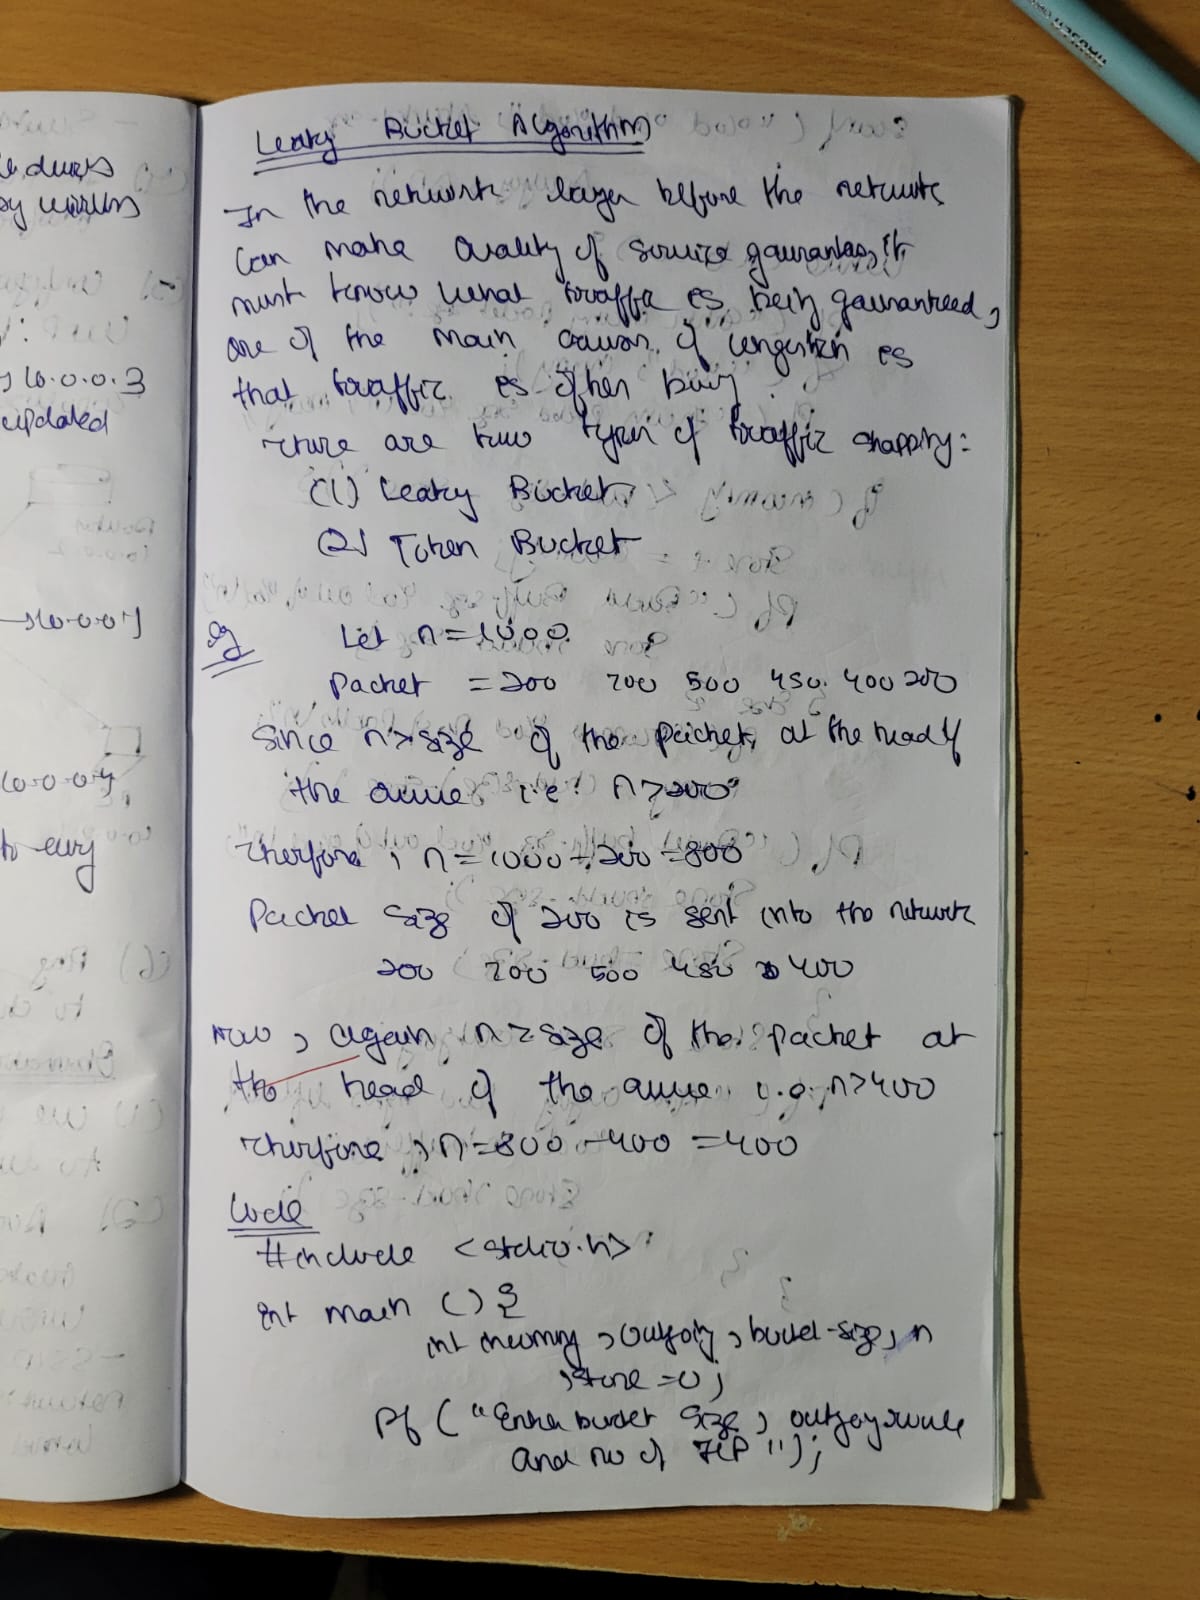 Leaky Bucket Algorithm
In the network layer before the network
Can make Quality of service gaurantees, it
must know what traffic is being gauranteed,
one of the main causes of congestion is
that traffic is often busy.
There are two types of traffic shapping:
(1) Leaky Bucket
(2) Token Bucket
Eg Let n=1000
Packet = 200 700 500 450 400 200
Since n > size of the packet, at the head of
the queue i.e. n > 200
Therfore, n = 1000 - 200 = 800
Packet size of 200 is sent into the network
200 700 500 450 400
Now, again n > size of the packet at
the head of the queue i.e. n > 400
Therfore, n = 800 - 400 = 400
Code
#include <stdio.h>
int main () {
int incoming, outgoing, bucket-size, n
, store = 0;
Pf ("Enter bucket size, outgoing
and no of I/P ");
updated
10.0.0.3
to every